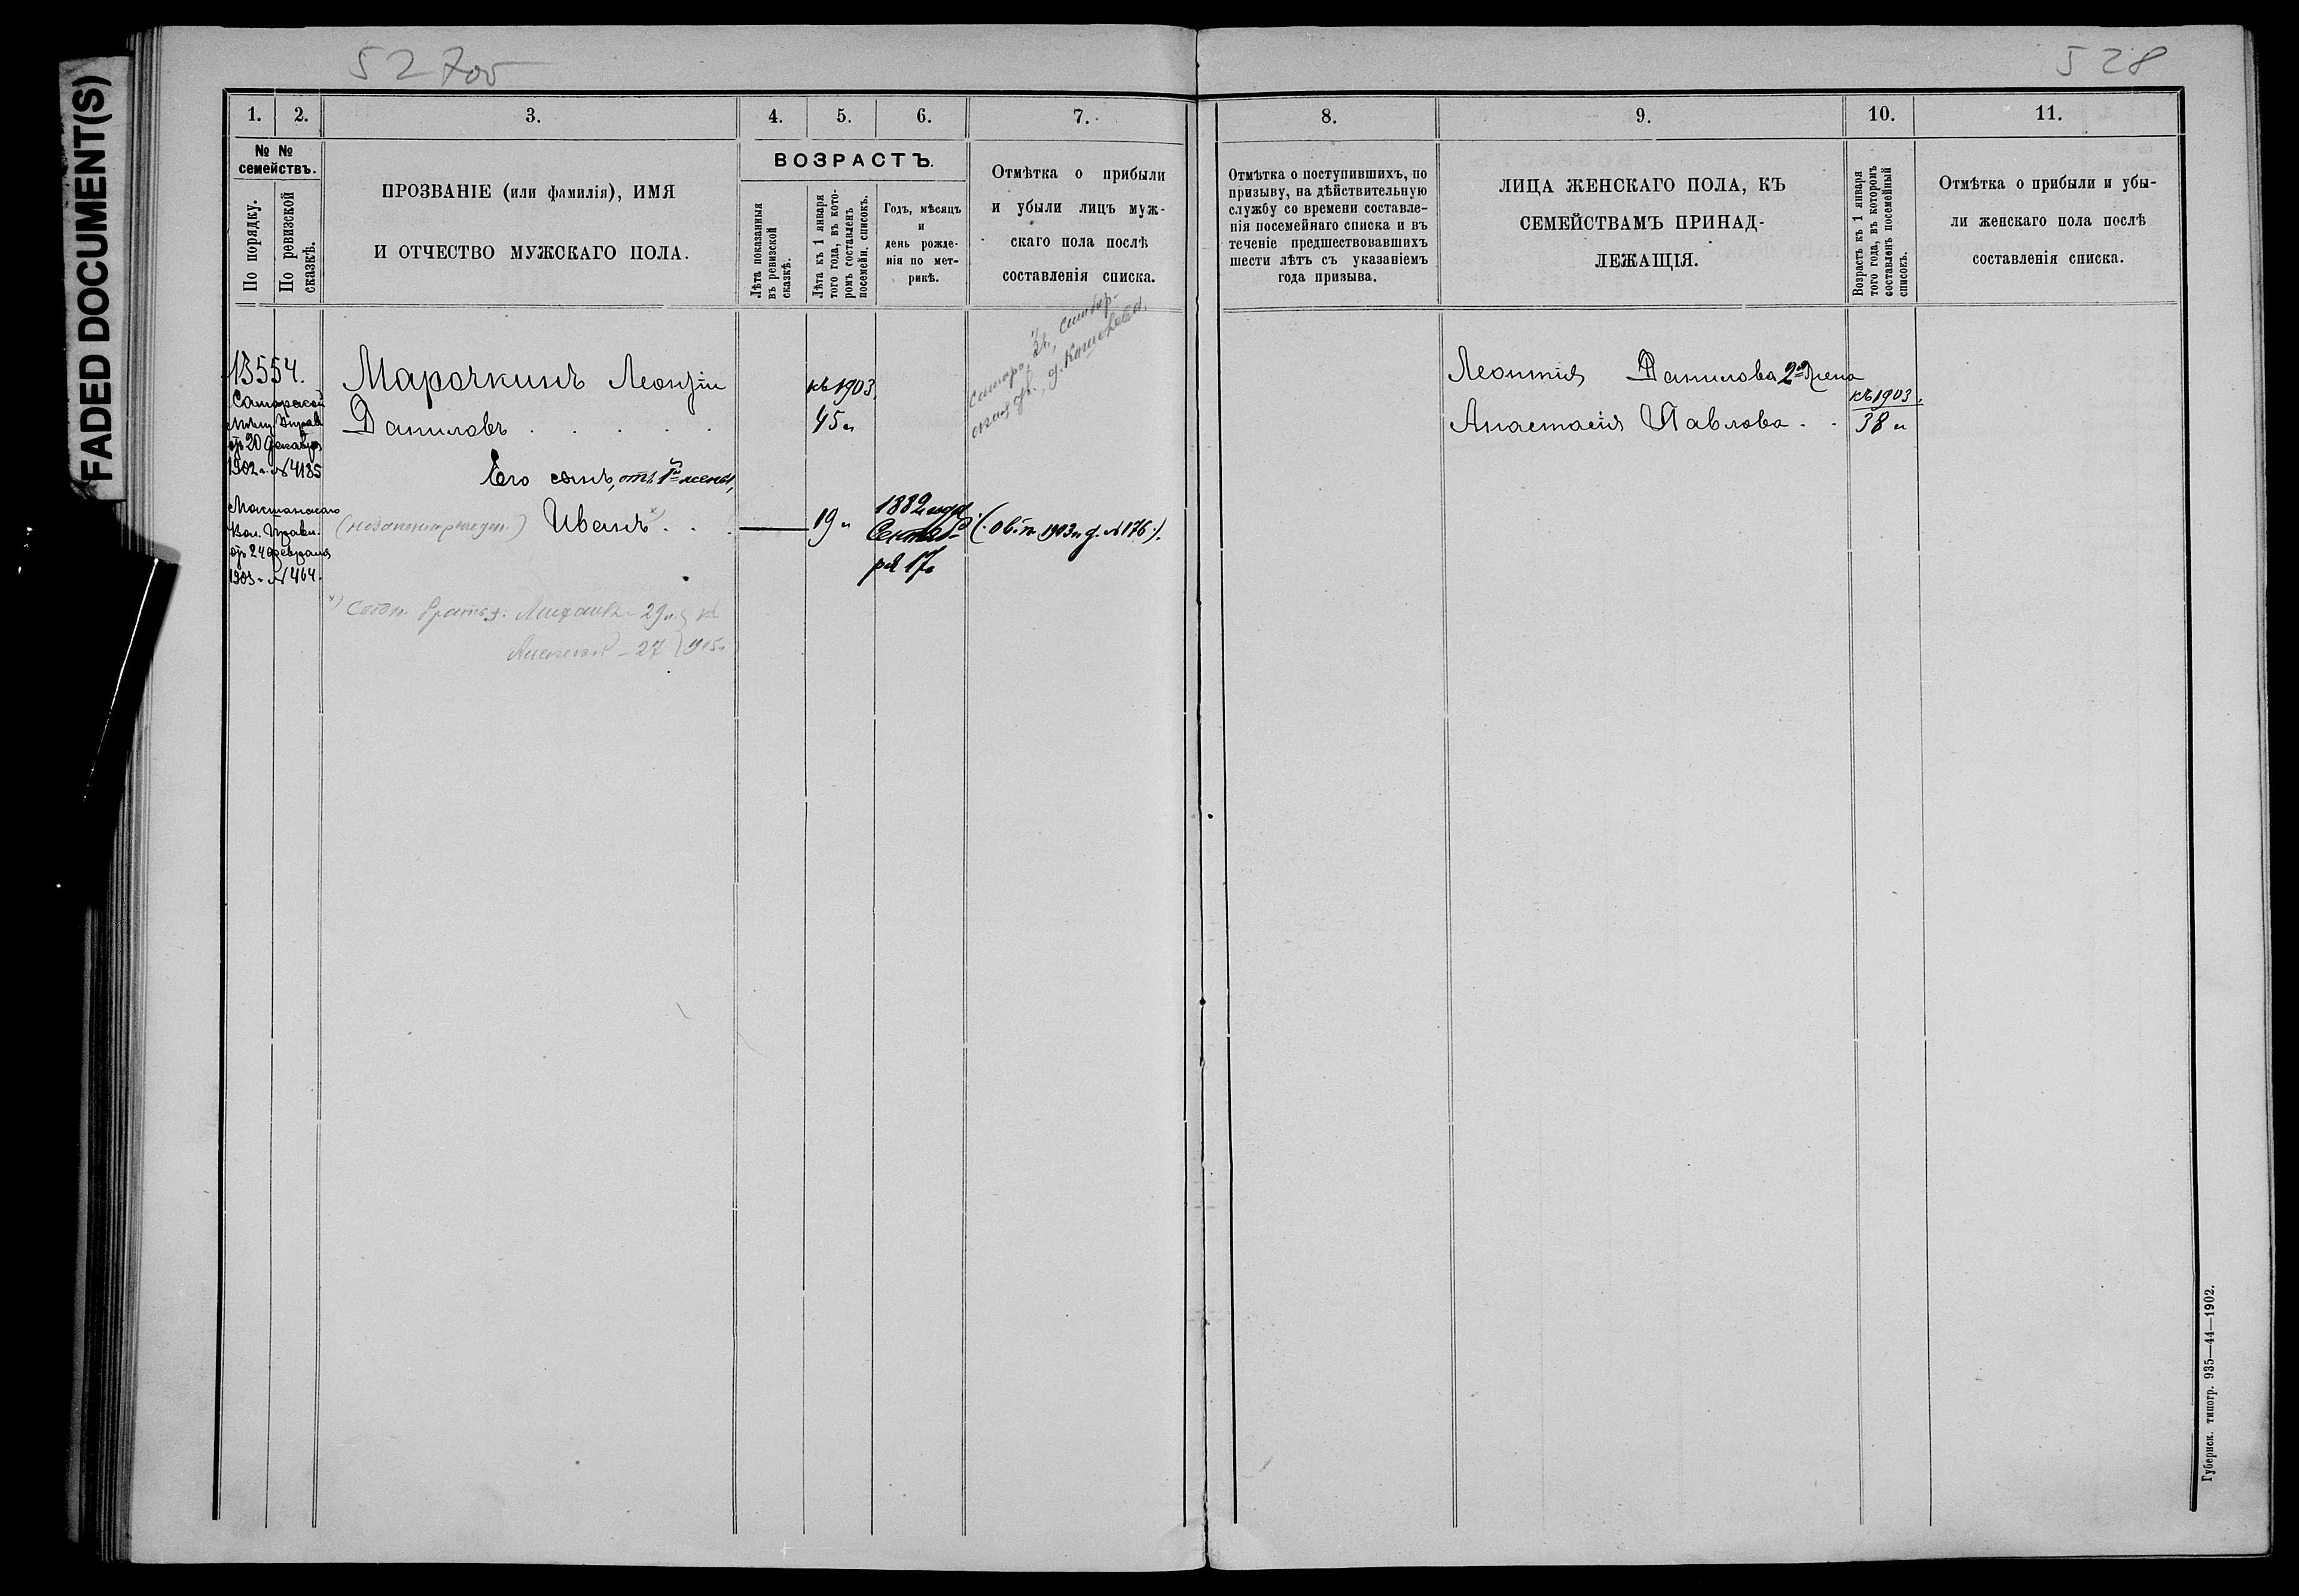 FADED DOCUMENT(S)
527об
528
1.
2.
3.
4.
5.
6.
7.
8.
9.
10.
11.
№ №
семействъ.
По порядку.
По ревизской
сказкѣ.
ПРОЗВАНІЕ (или фамилія), ИМЯ
И ОТЧЕСТВО МУЖСКАГО ПОЛА.
ВОЗРАСТЪ.
Лѣта показанныя
въ ревизской
сказкѣ.
Лѣта къ 1 января
того года, въ кото-
ромъ составленъ
посемейн. списокъ.
Годъ, мѣсяцъ
и
день рожде-
нія по мет-
рикѣ.
Отмѣтка о прибыли
и убыли лицъ муж-
скаго пола послѣ
составленія списка.
Отмѣтка о поступившихъ, по
призыву, на дѣйствительную
службу со времени составле-
нія посемейнаго списка и въ
теченіе предшествовавшихъ
шести лѣтъ съ указаніемъ
года призыва.
ЛИЦА ЖЕНСКАГО ПОЛА, КЪ
СЕМЕЙСТВАМЪ ПРИНАД-
ЛЕЖАЩІЯ.
Возрастъ къ 1 января
того года, въ которомъ
составленъ посемейный
списокъ.
Отмѣтка о прибыли и убы-
ли женскаго пола послѣ
составленія списка.
13554.
Самарской
Мѣщ. Управ.
отъ 20 Декабря
1902 г. № 4185
Вол. Правл.
отъ 24 февраля
1903 г. № 464.
Марочкинъ Леонтій
Даниловъ
къ 1903
45 л
Его сынъ, отъ 1й жены,
Иванъ х)
19 л
1882 года
Сентяб-
ря 17.
(об. п. 1903 г. д. № 176).
х) братья: Михаилъ - 29 л. къ
Алексей - 27 1905 г
Леонтія Данилова 2я жена
Анастасія Павлова
къ 1903.
38 л
Губернск. типогр. 935—44—1902.